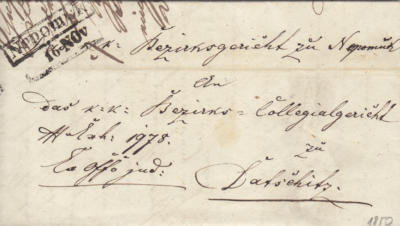 Nepomuk
16 NOV
k: k: Bezirksgericht zu Nepomuk
An
das k: k: Bezirks=Collegialgericht
1978.
zu
Ex offo jud:
Datschitz.
1850